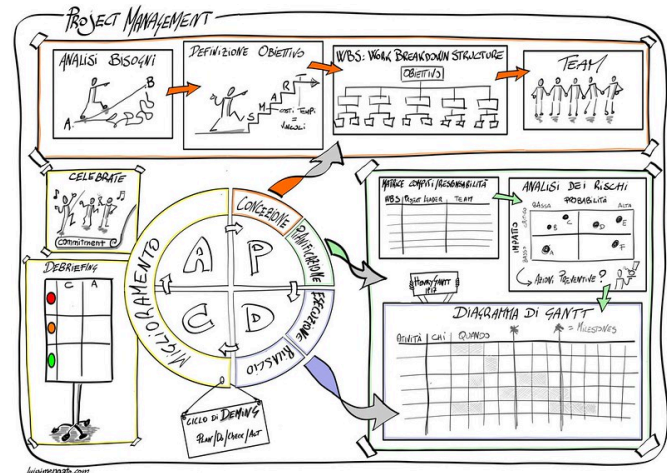 PROJECT MANAGEMENT
ANALISI BISOGNI
A
B
DEFINIZIONE OBIETTIVO
S
M
A
R
T
COSTI TEMPI
=
VINCOLI
WBS: WORK BREAKDOWN STRUCTURE
OBIETTIVO
TEAM
CELEBRATE
commitment
DEBRIEFING
C A
MIGLIORAMENTO
CONCEZIONE
PIANIFICAZIONE
ESECUZIONE
RILASCIO
A P
C D
CICLO DI DEMING
PLAN/DO/CHECK/ACT
MATRICE COMPITI/RESPONSABILITÀ
WBS PROJECT LEADER TEAM
ANALISI DEI RISCHI
PROBABILITÀ
BASSA ALTA
IMPATTO
BASSO
A
B
C
D
E
F
AZIONI PREVENTIVE?
HENRY GANTT
1917
DIAGRAMMA DI GANTT
ATTIVITÀ CHI QUANDO
= MILESTONES